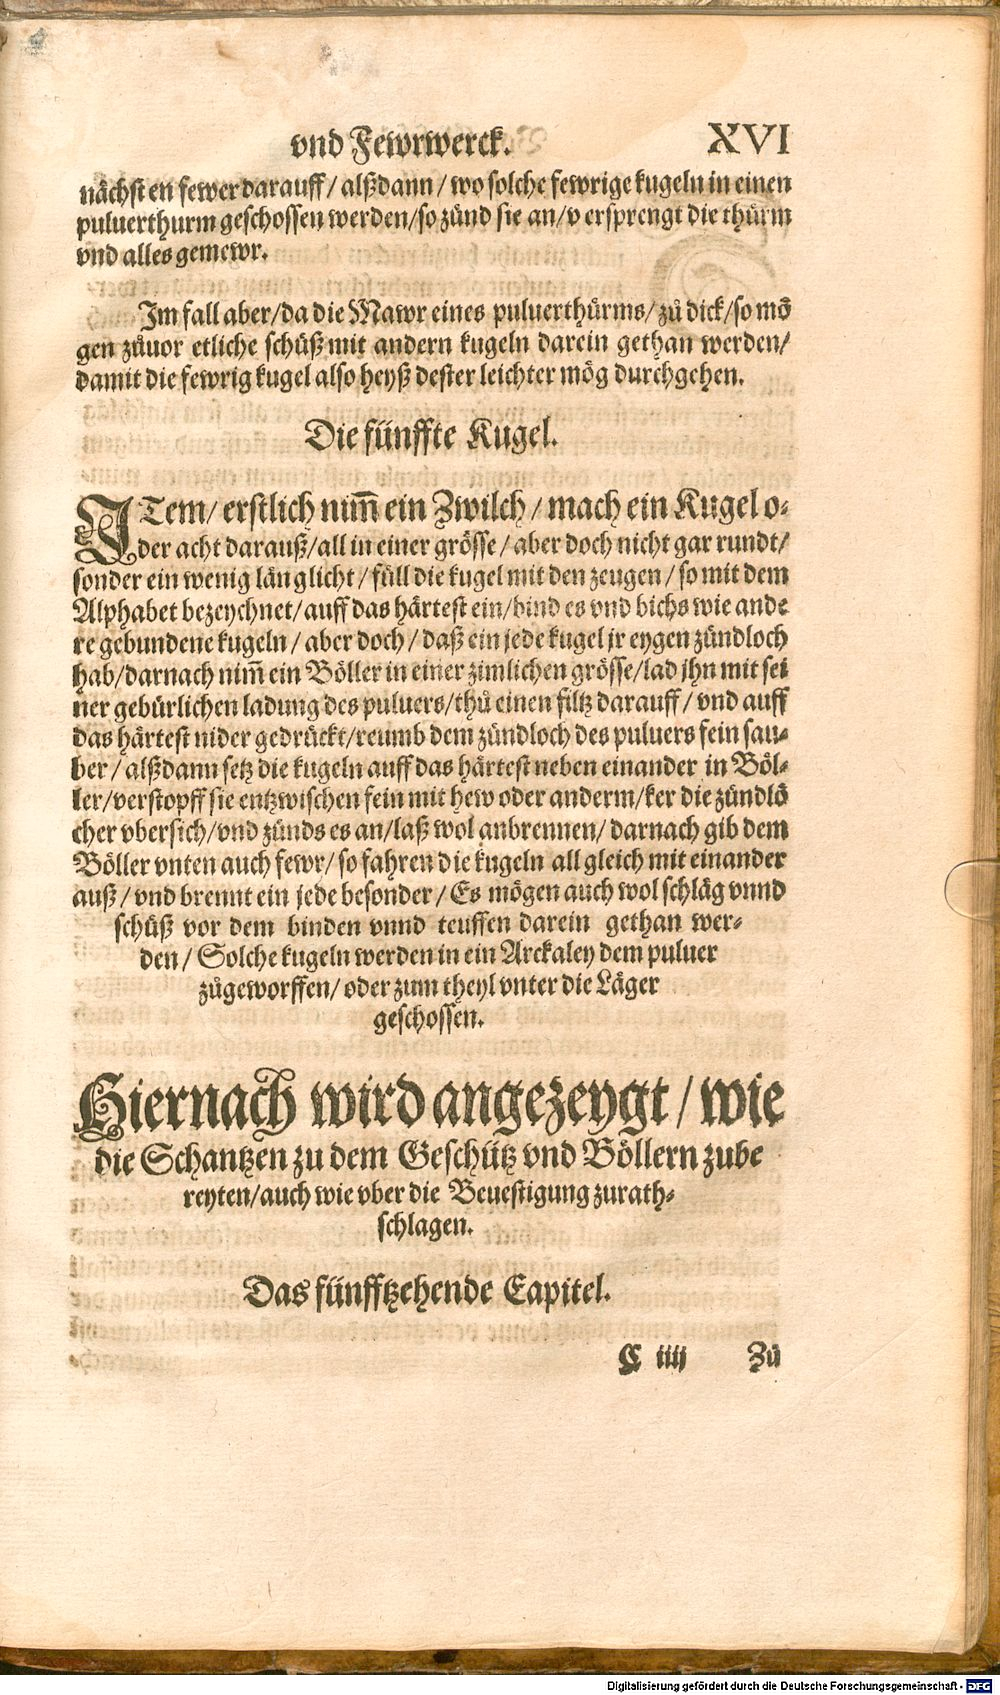 vnd Fewrwerck. XVI
nächsten fewer darauff / alßdann / wo solche fewrige kugeln in einen
puluerthurm geschossen werden / so zünd sie an / versprengt die thürm
vnd alles gemewr.
Im fall aber / da die Mawr eines puluerthürms / zů dick / so mö
gen zůuor etliche schüß mit andern kugeln darein gethan werden /
damit die fewrig kugel also heyß dester leichter mög durchgehen.
Die fünffte Kugel.
ITem / erstlich nim̄ ein Zwilch / mach ein Kugel o-
der acht darauß / all in einer grösse / aber doch nicht gar rundt /
sonder ein wenig länglicht / füll die kugel mit den zeugen / so mit dem
Alphabet bezeychnet / auff das härtest ein / bind es vnd bichs wie ande
re gebundene kugeln / aber doch / daß ein jede kugel jr eygen zündloch
hab / darnach nim̄ ein Böller in einer zimlichen grösse / lad jhn mit sei
ner gebürlichen ladung des puluers / thů einen filtz darauff / vnd auff
das härtest nider gedrückt / reumb dem zündloch des puluers fein sau-
ber / alßdann setz die kugeln auff das härtest neben einander in Böl-
ler / verstopff sie entzwischen fein mit hew oder anderm / ker die zündlö
cher vbersich / vnd zünds es an / laß wol anbrennen / darnach gib dem
Böller vnten auch fewr / so fahren die kugeln all gleich mit einander
auß / vnd brennt ein jede besonder / Es mögen auch wol schläg vnnd
schüß vor dem binden vnnd teuffen darein gethan wer-
den / Solche kugeln werden in ein Arckaley dem puluer
zůgeworffen / oder zum theyl vnter die Läger
geschossen.
Hiernach wird angezeygt / wie
die Schantzen zu dem Geschütz vnd Böllern zube
reyten / auch wie vber die Beuestigung zurath-
schlagen.
Das fünfftzehende Capitel.
C iiij Zů
Digitalisierung gefördert durch die Deutsche Forschungsgemeinschaft - DFG